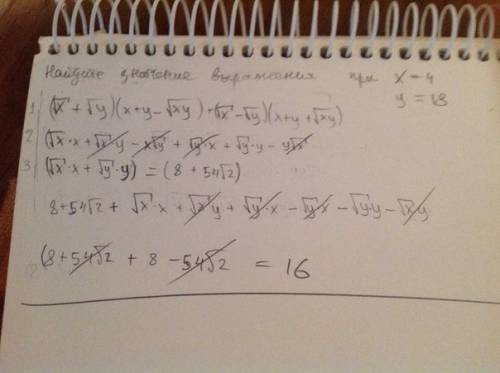 Найдите значение выражения при x = 4
y = 18
1 (√x + √y)(x+y-√xy) + (√x - √y)(x+y+√xy)
2 (√x·x + √x·y - x√y + √y·x + √y·y - y√x
3 (√x·x + √y·y) = (8 + 54√2)
8+54√2 + √x·x + √x·y + √y·x - √y·x - √y·y - √x·y
(8+54√2 + 8 - 54√2 = 16